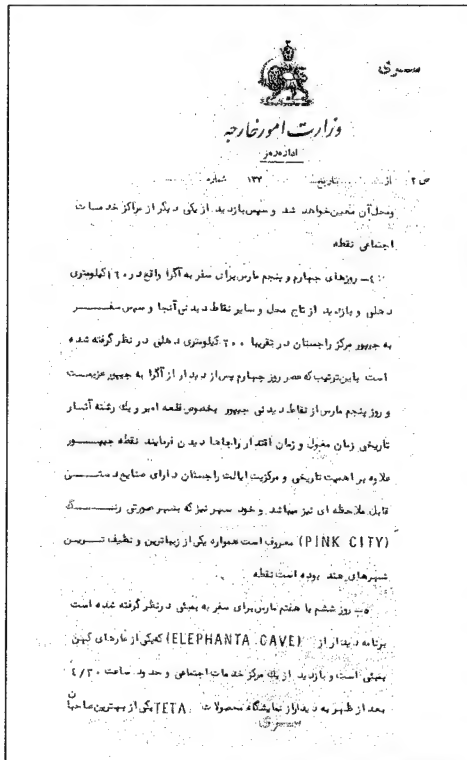 سری
وزارت امور خارجه
اداره رمز
ص ۲ از تاریخ ۱۳۷ شماره
ومحل آن معین خواهد شد و سپس بازدید از یکی دیگر از مراکز خدمات
اجتماعی نقطه
۴- روزهای چهارم و پنجم مارس برای سفر به آگرا واقع در ۱۶۰ کیلومتری
دهلی و بازدید از تاج محل و سایر نقاط دیدنی آنجا و سپس سفر
به جیپور مرکز راجستان در تقریبا ۲۰۰ کیلومتری دهلی در نظر گرفته شده
است باین ترتیب که عصر روز چهارم پس از دیدار از آگرا به جیپور عزیمت
و روز پنجم مارس از نقاط دیدنی جیپور بخصوص قلعه امبر و یک رشته آثار
تاریخی زمان مغول و زمان اقتدار راجاها دیدن فرمایند نقطه جیپور
علاوه بر اهمیت تاریخی و مرکزیت ایالت راجستان دارای صنایع دستی
قابل ملاحظه ای نیز میباشد و خود سهر نیز که بشهر صورتی رنگ
(PINK CITY) معروف است همواره یکی از زیباترین و نظیف ترین
شهرهای هند بوده است نقطه
۵- روز ششم یا هفتم مارس برای سفر به بمبئی در نظر گرفته شده است
برنامه دیدار از (ELEPHANTA CAVE) که یکی از غارهای کهن
بمبئی است و بازدید از یک مرکز خدمات اجتماعی و حدود ساعت ۴/۳۰
بعد از ظهر به دیدار از نمایشگاه محصولات TETA یکی از بهترین صاحبان
سری